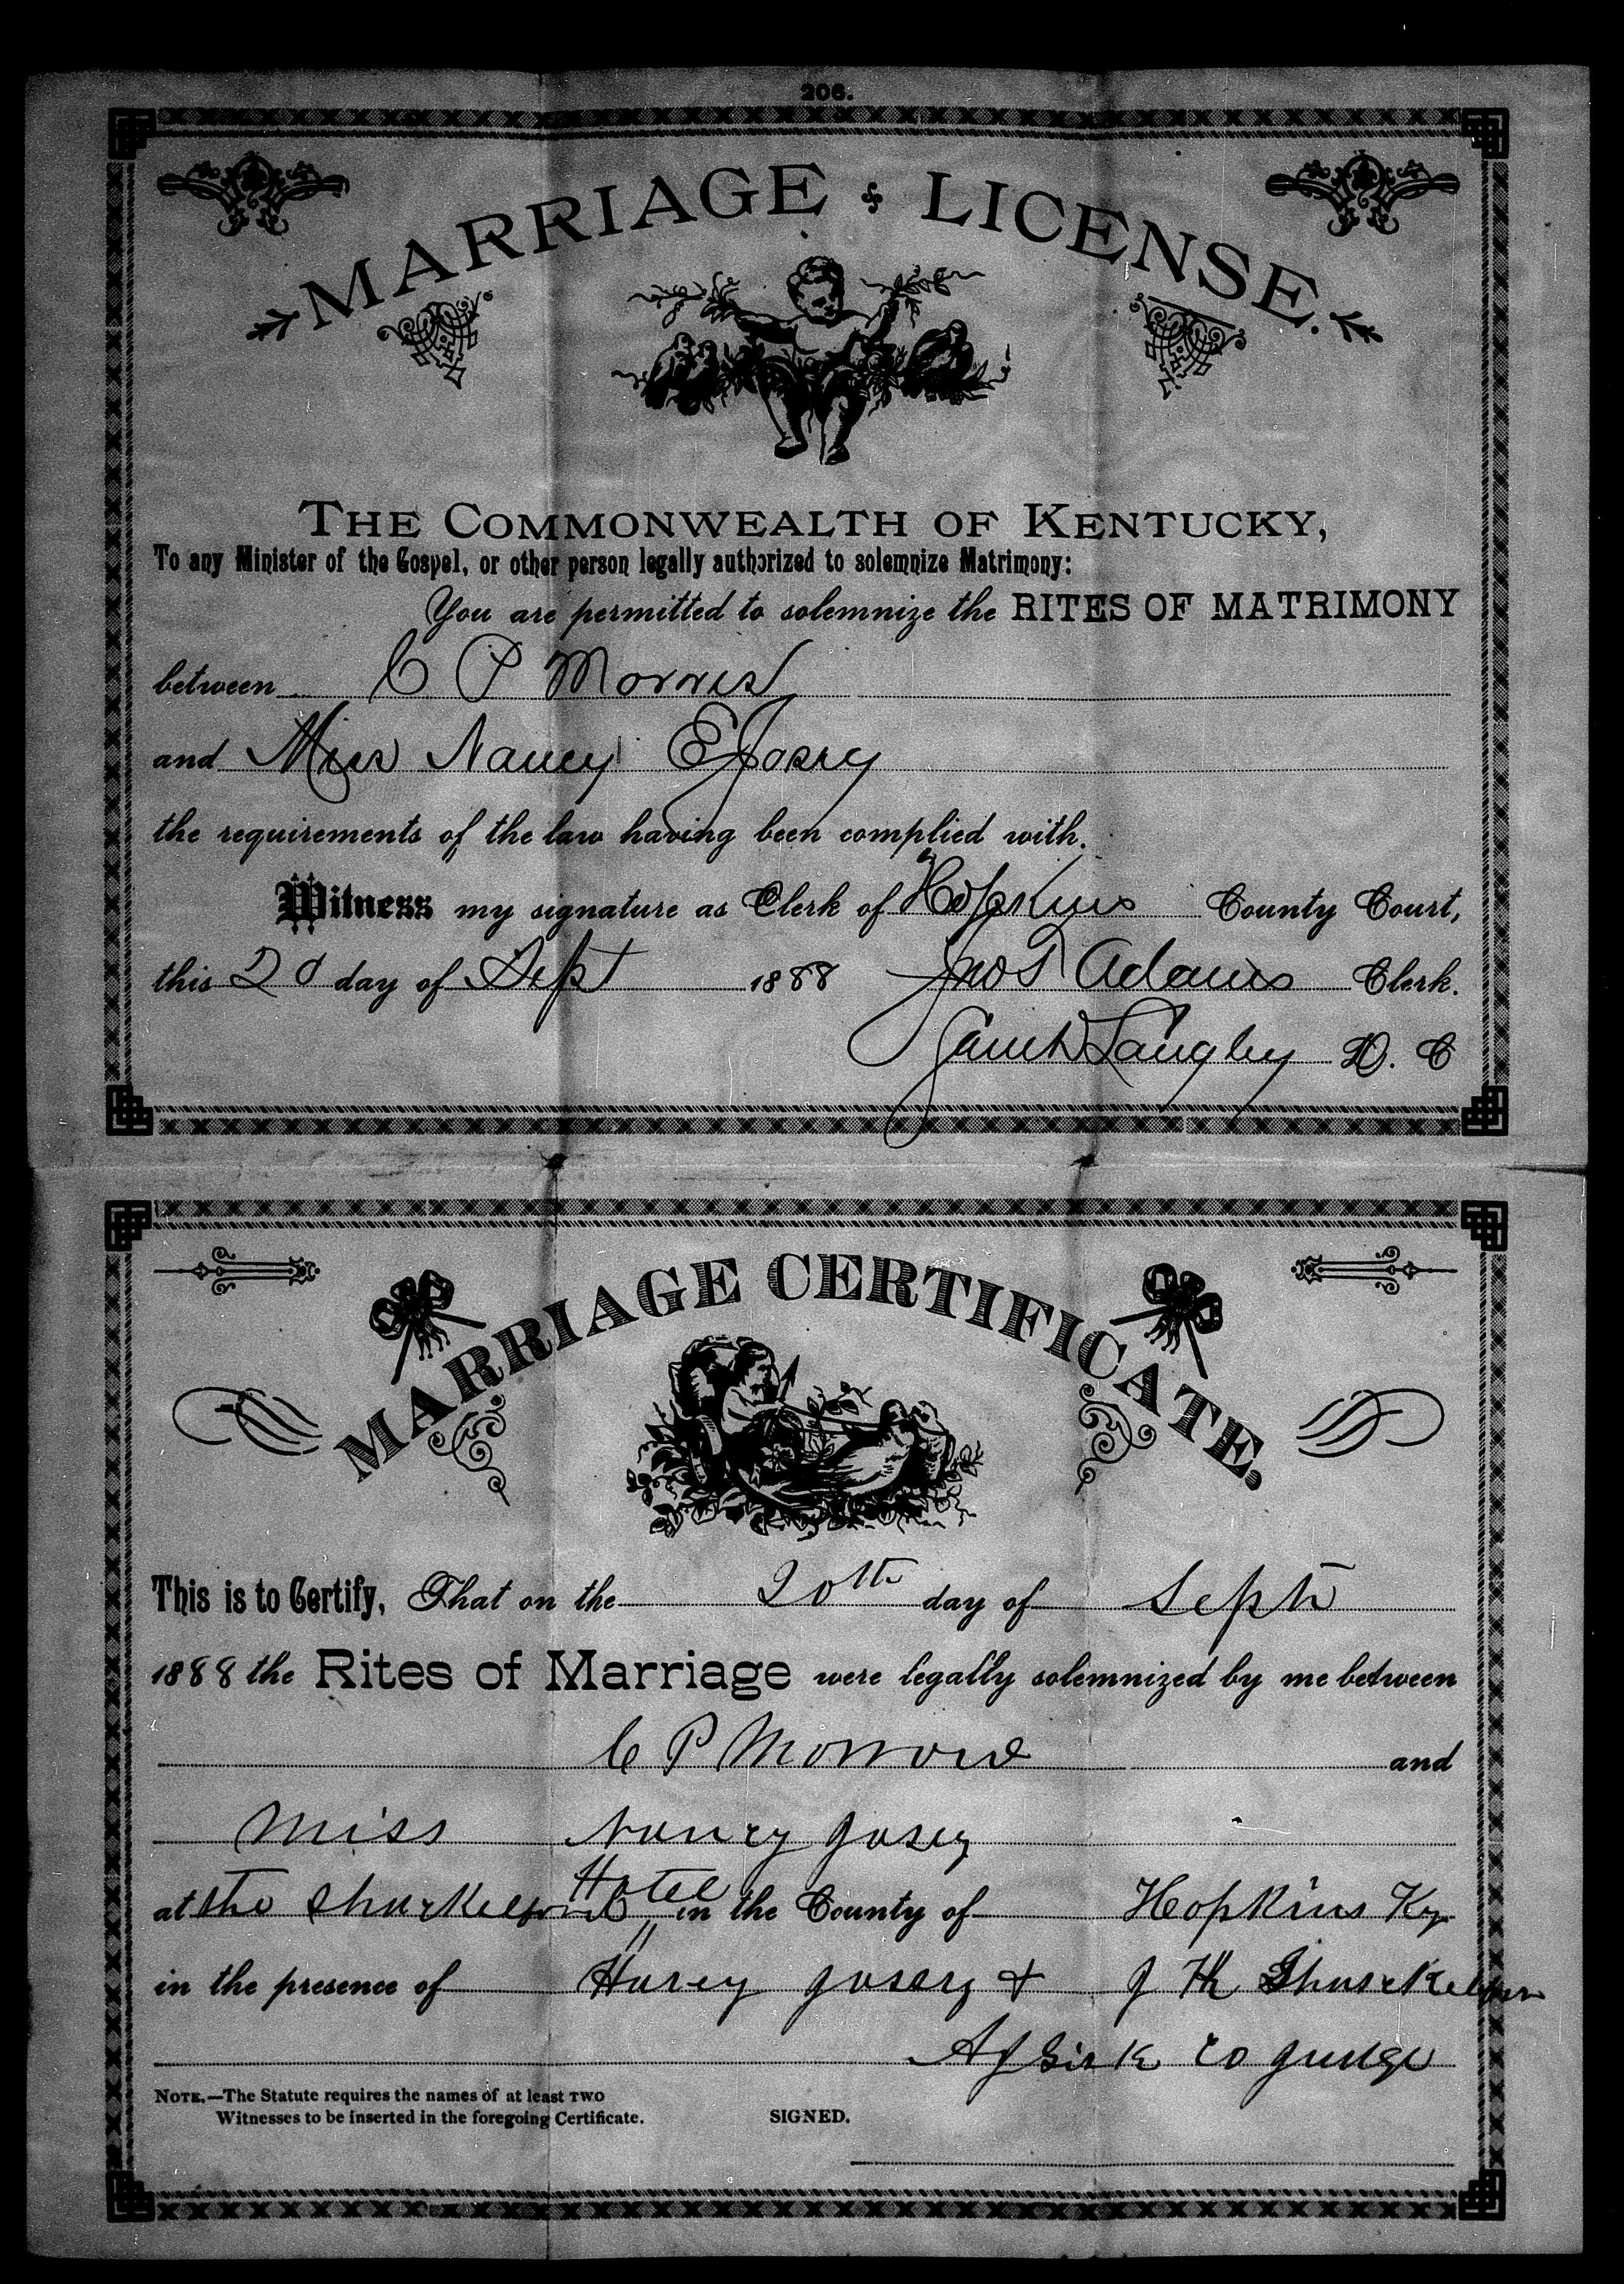 206.
MARRIAGE LICENSE.
THE COMMONWEALTH OF KENTUCKY,
To any Minister of the Gospel, or other person legally authorized to solemnize Matrimony:
You are permitted to solemnize the RITES OF MATRIMONY
between C P Morris
and Miss Nancy E Josey
the requirements of the law having been complied with.
Witness my signature as Clerk of Hopkins County Court,
this 20 day of Sept 1888 Jno T Adams Clerk.
Langley D. C
MARRIAGE CERTIFICATE.
This is to Certify, That on the 20th day of Sept
1888 the Rites of Marriage were legally solemnized by me between
C P Morrow and
Miss Nancy Josey
Hotel
at the in the County of Hopkins Ky
in the presence of Harey Josey + J
Co Judge
NOTE.—The Statute requires the names of at least TWO
Witnesses to be inserted in the foregoing Certificate. SIGNED.